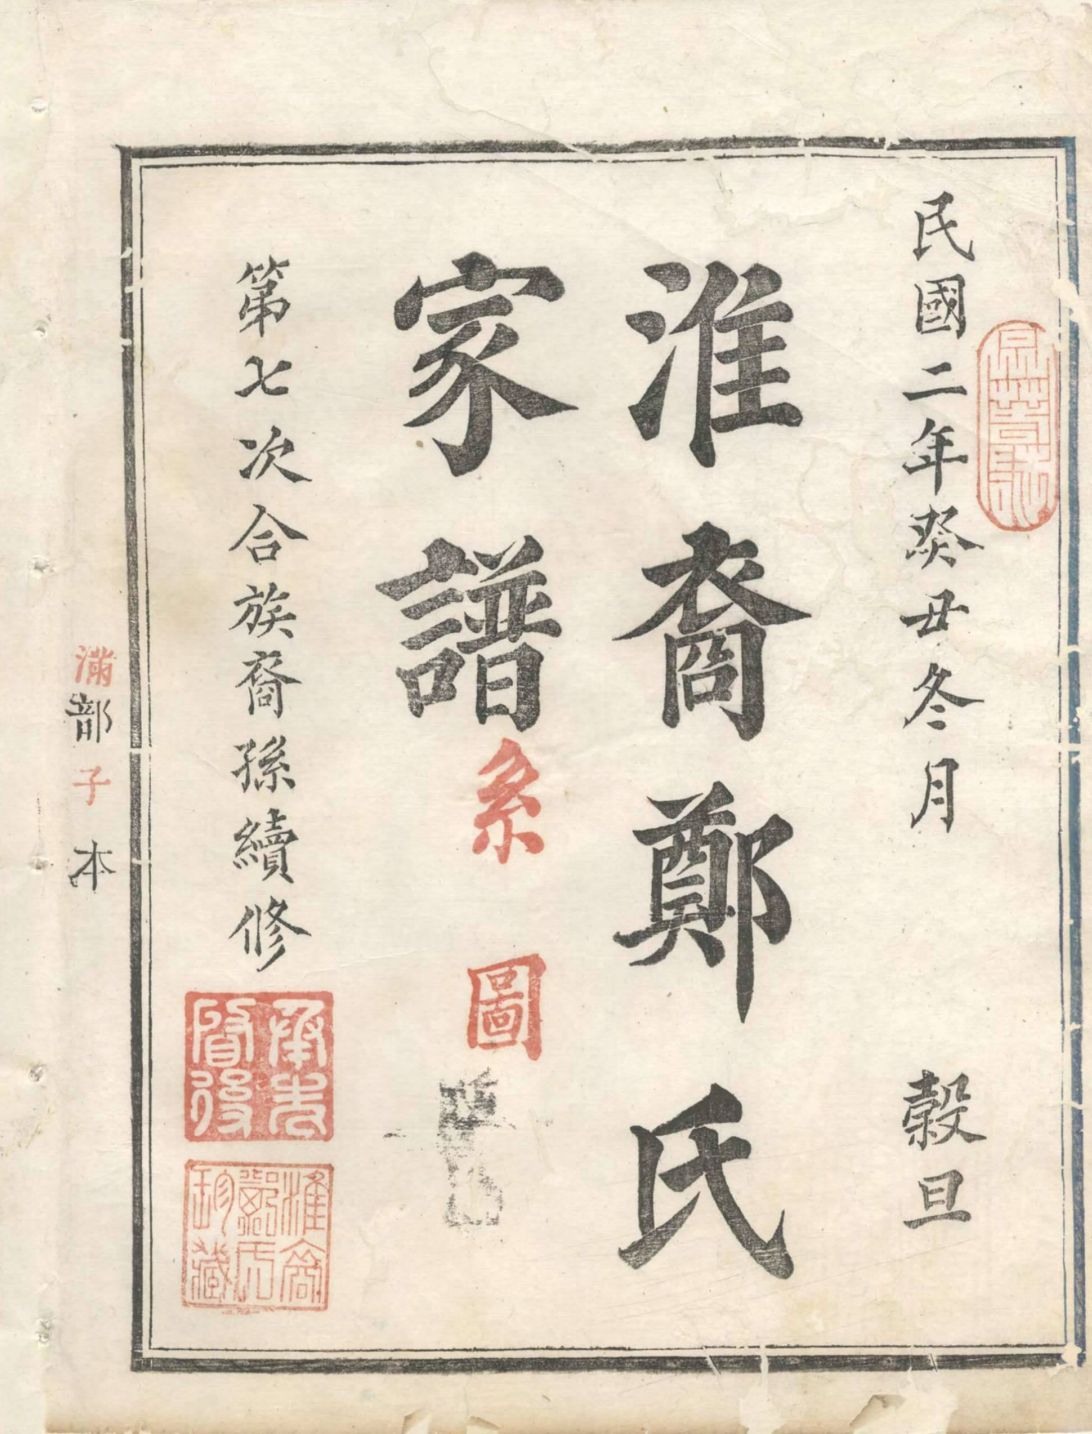 民國二年癸丑冬月　穀旦
淮裔鄭氏
家譜系圖
第七次合族裔孫續修
承先啓後
淮裔鄭氏珍藏
滿部子本